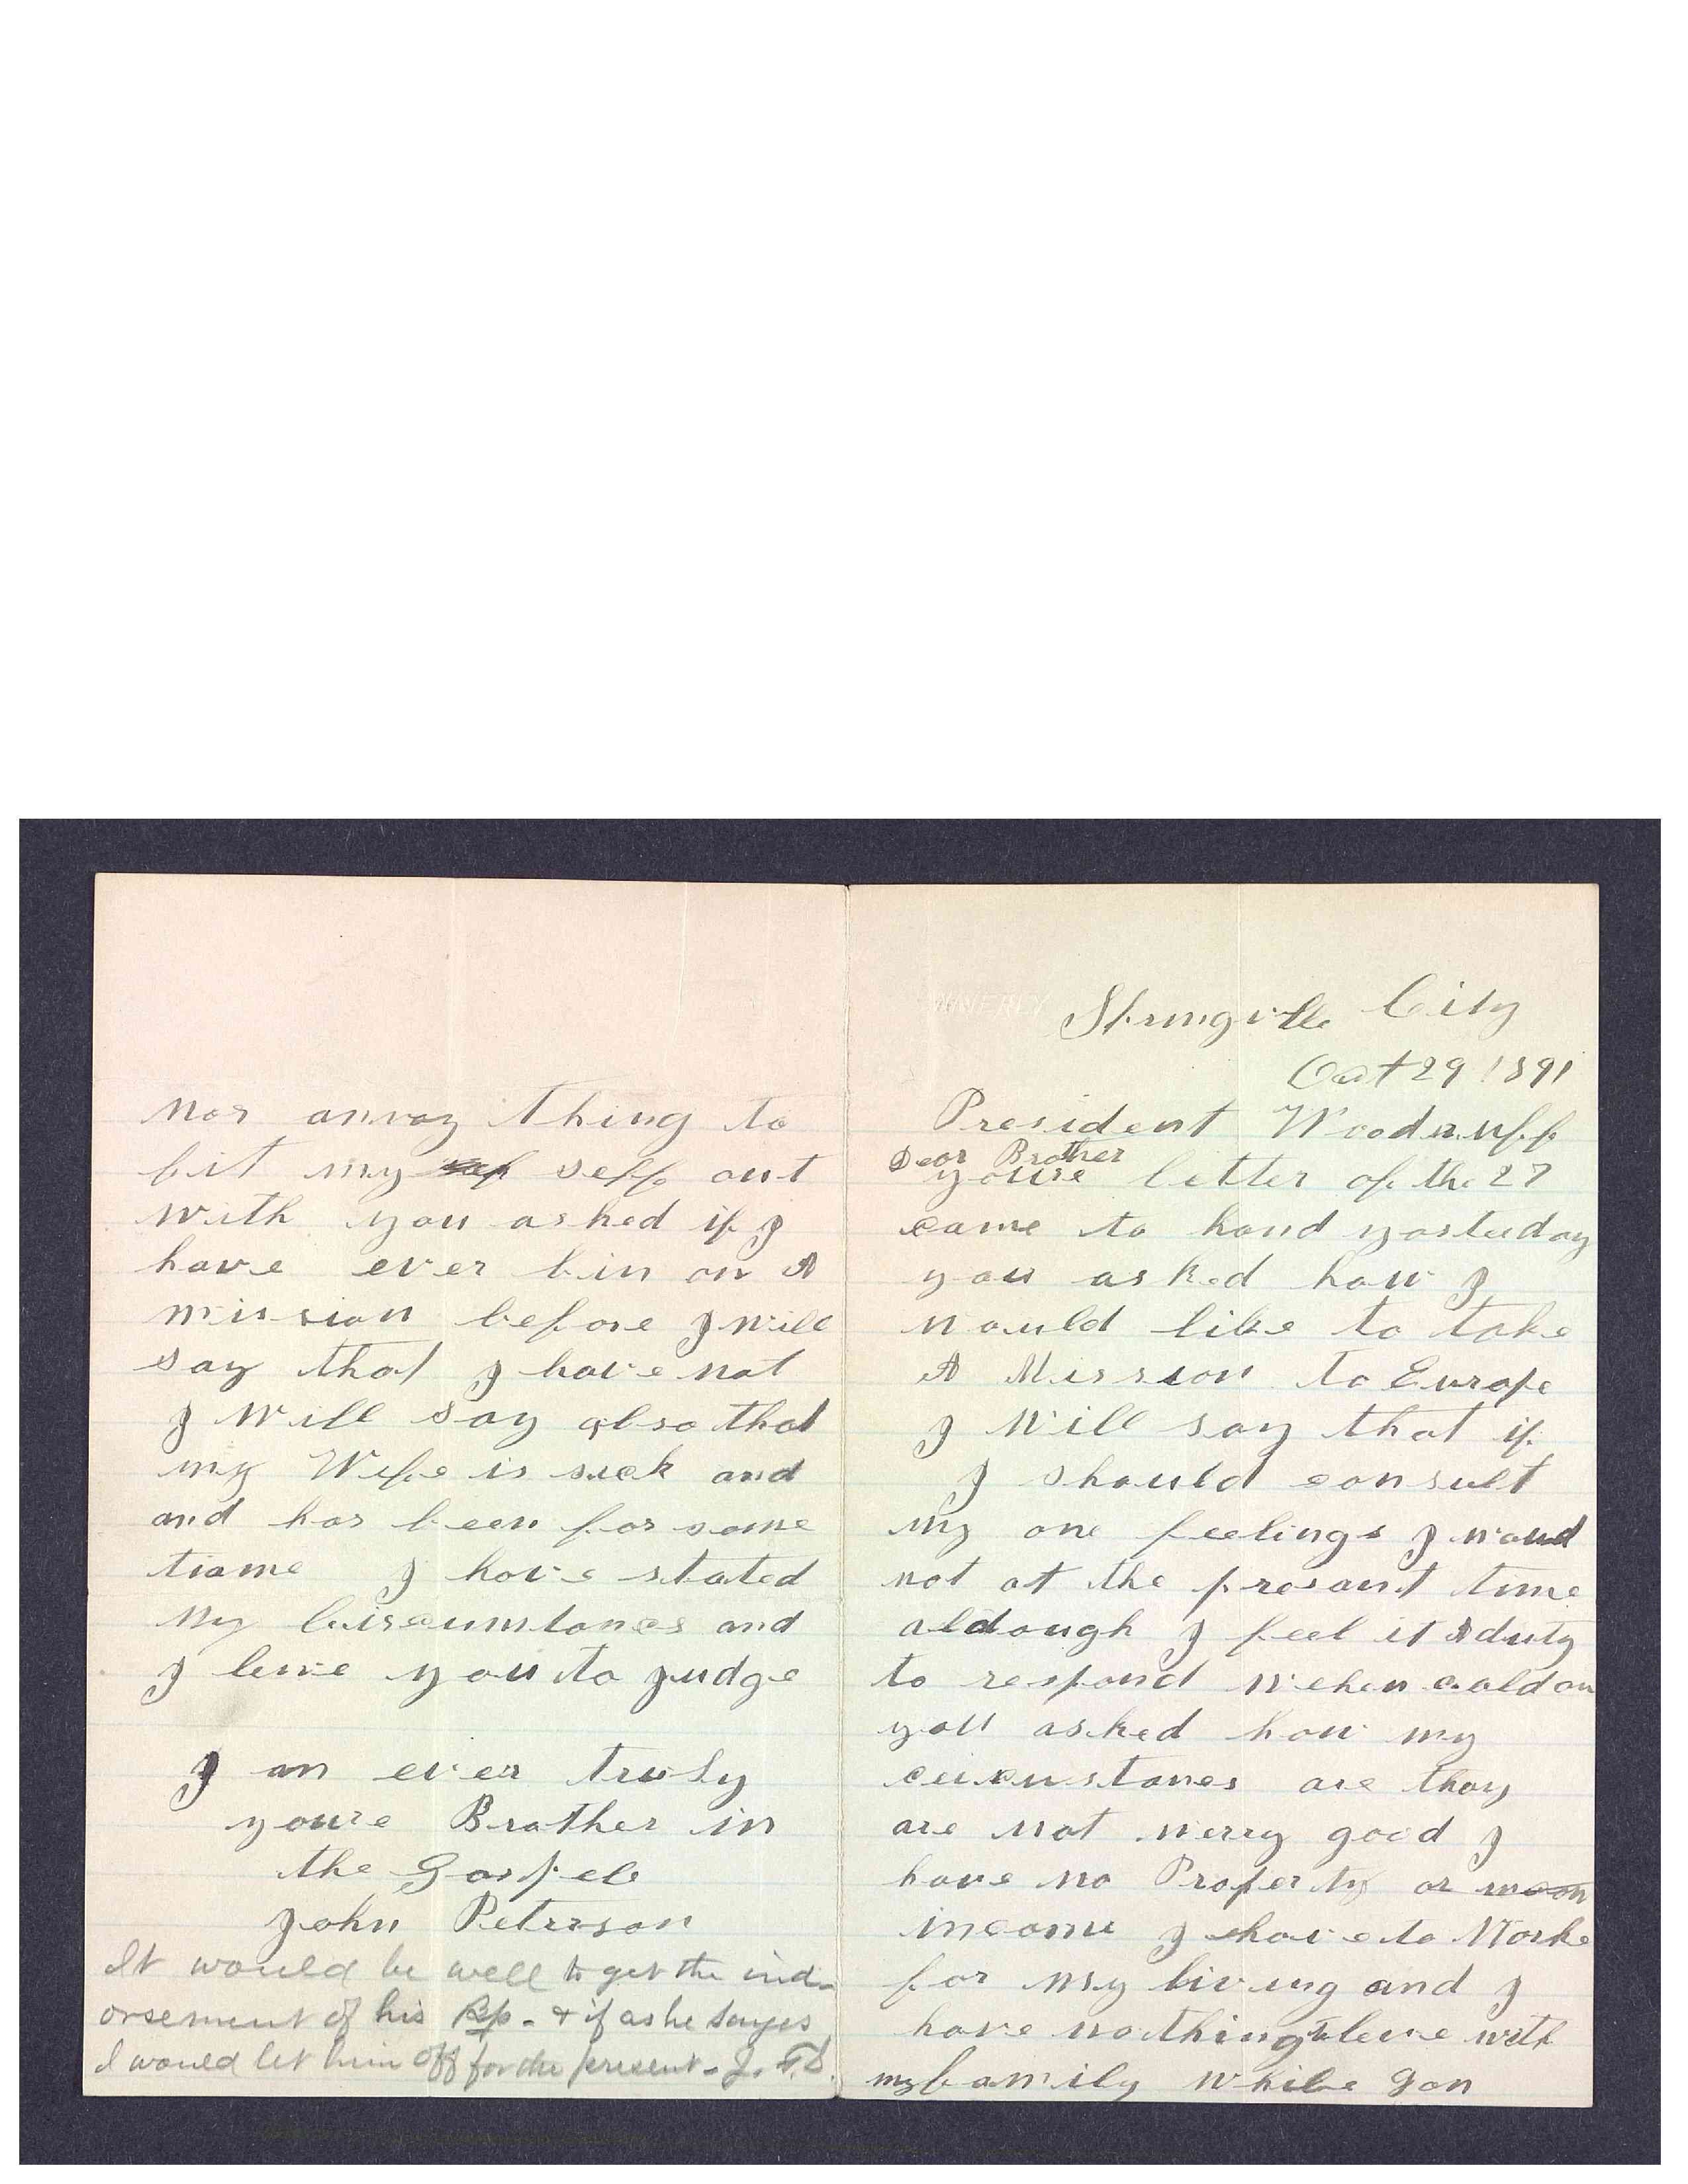 Springville City
Oct 29 1891
President Woodruff
Dear Brother
youre letter of the 27
came to hand yasterday
you asked how I
would like to take
A Mission to Europe
I will say that if
I should consult
my one feelings I would
not at the presant time
aldough I feel it A duty
to respond wehen cald on
you asked how my
circumstances are thay
are not werry good I
have no Property or
income I have to Worke
for my living and I
have nothing to leve with
my family while gon
Nor annay thing to
fit my self out
with you asked if I
have ever bin on A
mission before I will
say that I have not
I will say also that
my Wife is sick and
and has been for some
tiame I have stated
My Circumstances and
I leve you to judge
I am ever truly
youre Brother in
the Gospele
John Peterson
It would be well to get the ind-
orsement of his Bp. & if as he sayes
I would let him off for the present. J. F. S.